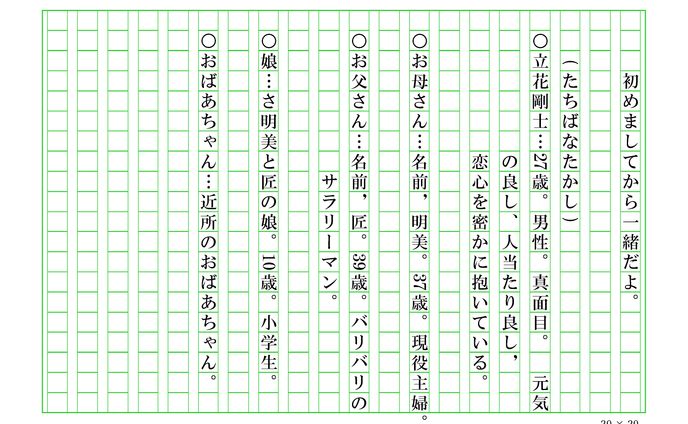 初めましてから一緒だよ。
（たちばなたかし）
〇立花剛士…27歳。男性。真面目。　元気
の良し、人当たり良し，
恋心を密かに抱いている。
〇お母さん…名前，明美。　37歳。　現役主婦。
〇お父さん…名前，匠。39歳。バリバリの
サラリーマン。
〇娘…さ明美と匠の娘。10歳。小学生。
〇おばあちゃん…近所のおばあちゃん。
20 × 20